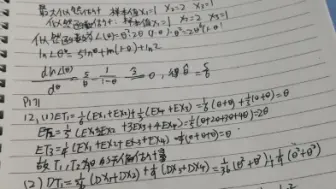 最大似然估计 样本值x₁=1 x₂=2 x₃=1
似然函数为L(θ)=θ²·2θ(1-θ)·θ²=2θ⁵(1-θ)
lnL(θ)=5lnθ+ln(1-θ)+ln2
dlnL(θ)/dθ = 5/θ - 1/(1-θ) = 0, 得θ̂=5/6
P171
12, (1) ET₁=1/6(EX₁+EX₂)+1/3(EX₃+EX₄)=1/6(θ+θ)+1/3(θ+θ)=θ
ET₂=1/5(EX₁+2EX₂+3EX₃+4EX₄)=1/5(θ+2θ+3θ+4θ)=2θ
ET₃=1/4(EX₁+EX₂+EX₃+EX₄)=θ
故T₁, T₃为θ的无偏估计量
(2) DT₁=1/36(DX₁+DX₂)+1/9(DX₃+DX₄)=1/36(θ²+θ²)+1/9(θ²+θ²)